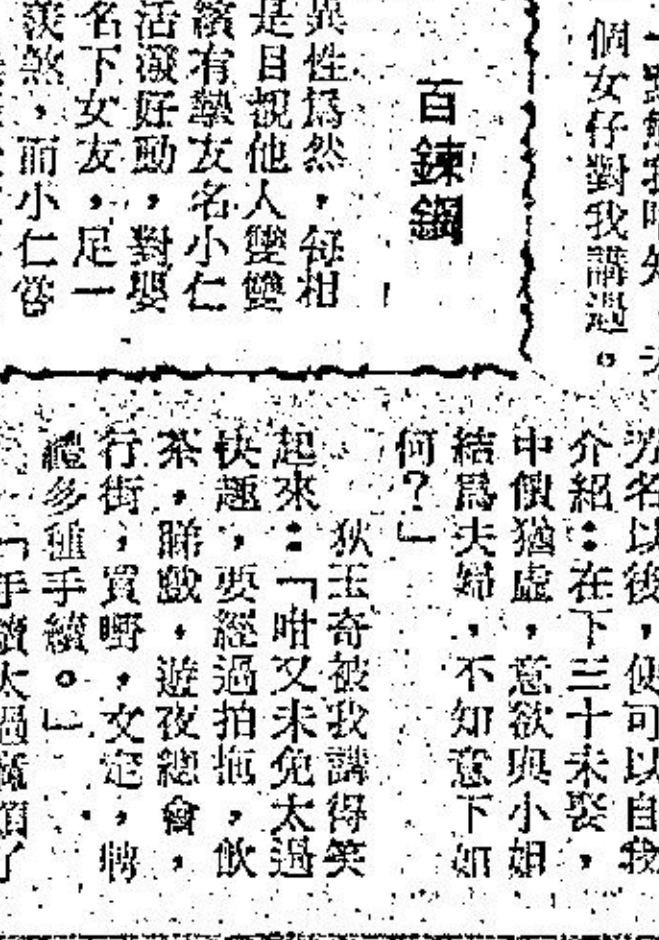 個女仔對我講過。
百鍊鋼
異性爲然，每相
是目覩他人雙雙
有摯友名小仁
活潑好動，對娶
名下女友，足一
羨煞，而小仁嘗
芳名以後，便可以自我
介紹：在下三十未娶，
中饋猶虛，意欲與小姐
結爲夫婦，不知意下如
何？」
狄王奇被我講得笑
起來：「咁又未免太過
快趣，要經過拍拖，飲
茶，睇戲，遊夜總會，
行街，買嘢，文定，聘
禮多種手續。」
「手續太過麻煩了